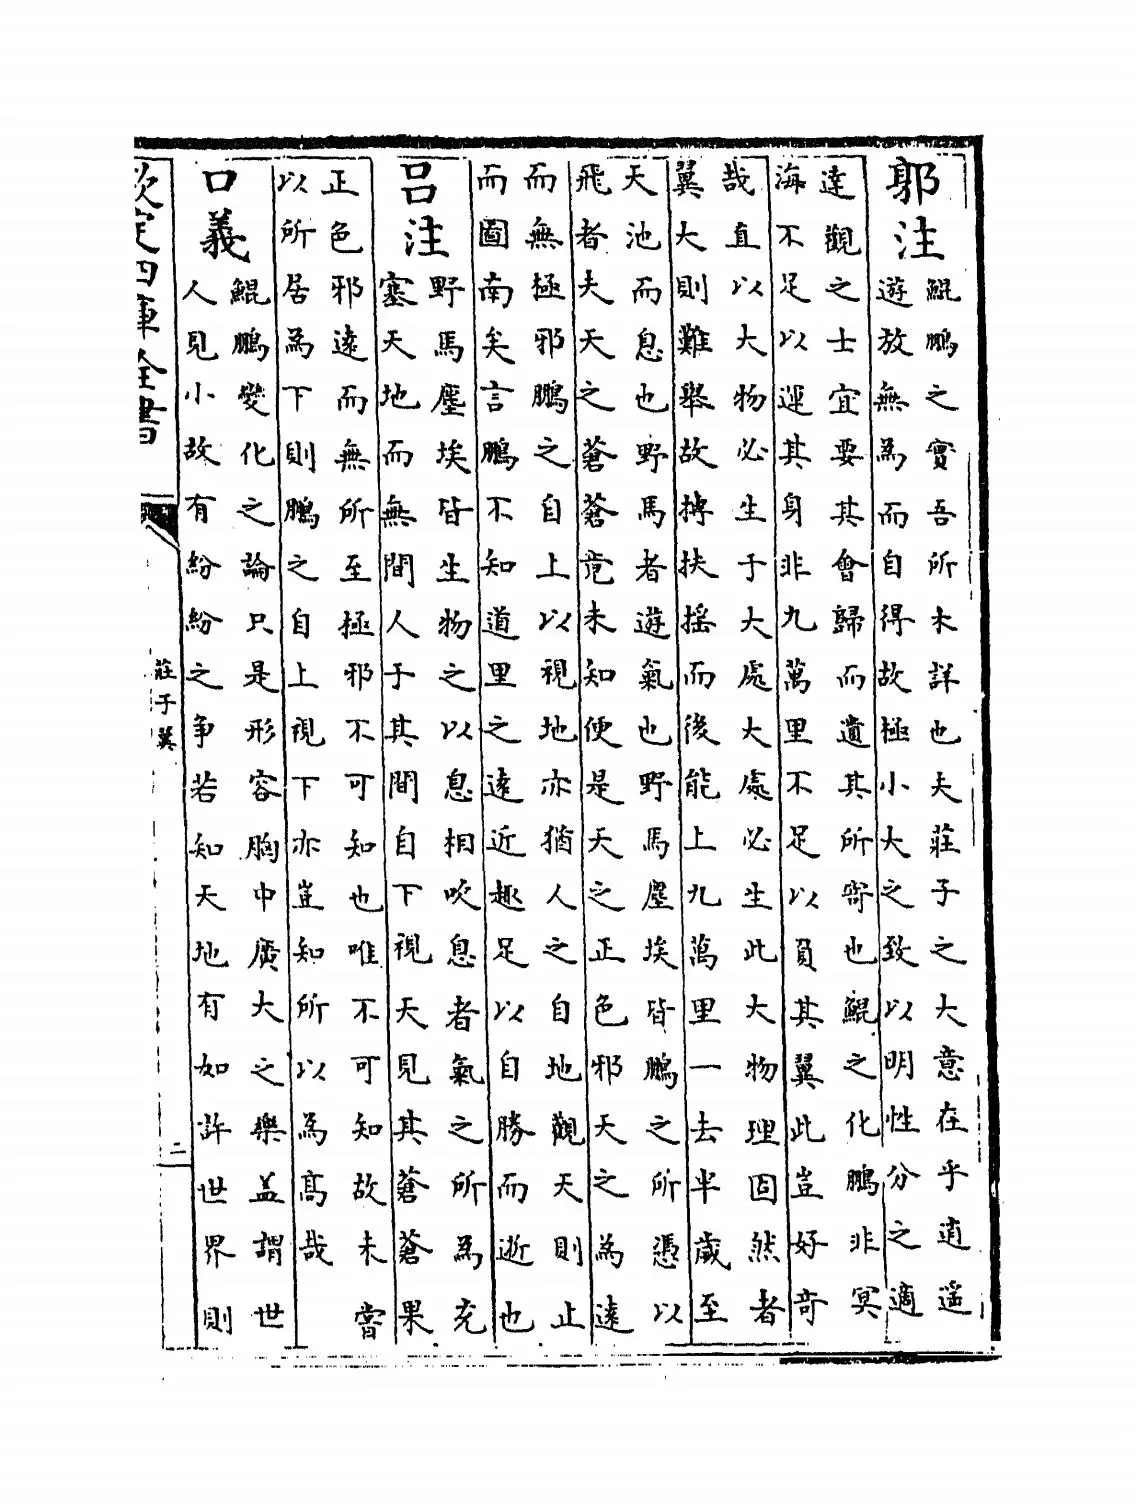 郭注
鯤鵬之實吾所未詳也夫莊子之大意在乎逍遥
遊放無為而自得故極小大之致以明性分之適
達觀之士宜要其會歸而遺其所寄也鯤之化鵬非冥
海不足以運其身非九萬里不足以負其翼此豈好奇
哉直以大物必生于大處大處必生此大物理固然者
翼大則難舉故摶扶摇而後能上九萬里一去半歲至
天池而息也野馬者遊氣也野馬塵埃皆鵬之所憑以
飛者夫天之蒼蒼竟未知便是天之正色邪天之為逺
而無極邪鵬之自上以視地亦猶人之自地觀天則止
而圖南矣言鵬不知道里之逺近趣足以自勝而逝也
吕注
野馬塵埃皆生物之以息相吹息者氣之所為充
塞天地而無間人于其間自下視天見其蒼蒼果
正色邪逺而無所至極邪不可知也唯不可知故未嘗
以所居為下則鵬之自上視下亦豈知所以為髙哉
口義
鯤鵬變化之論只是形容胸中廣大之樂盖謂世
人見小故有紛紛之争若知天地有如許世界則
欽定四庫全書
莊子翼
二